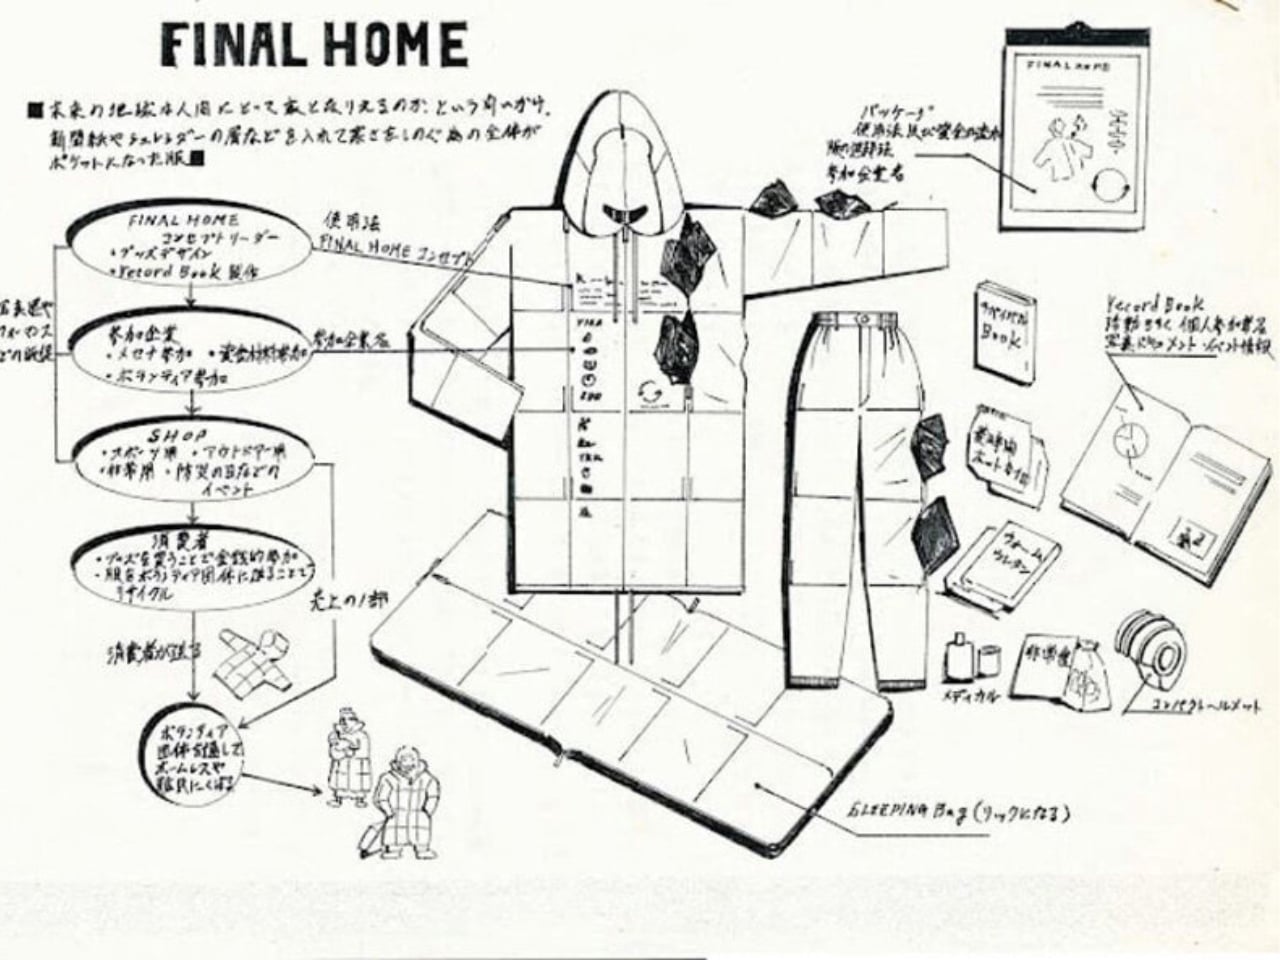 FINAL HOME
■未来の地球は人間にとって家となりえるのか、という問いかけ。
新聞紙やシュレッダーの屑などを入れて寒さをしのぐ為の全体が
ポケットになった服■
FINAL HOME
コンセプトリーダー
・グッズデザイン
・record Book 製作
使用法
FINAL HOME コンセプト
参加企業
・メセナ参加 ・資金材料参加
・ボランティア参加
参加企業名
SHOP
・スポーツ用 ・アウトドアー用
・非常用 ・防災の日などの
イベント
消費者
・グッズを買うことで金銭的参加
・服をボランティア団体に送ることで
リサイクル
売上の1部
消費者が送る
ボランティア
団体を通して
ホームレスや
難民にくばる
パッケージ
使用法
参加企業名
FINAL HOME
Book
record Book
個人参加署名
写真ドキュメント イベント情報
ウォーム
ウレタン
メディカル
コンパクトヘルメット
SLEEPING Bag (リュックになる)